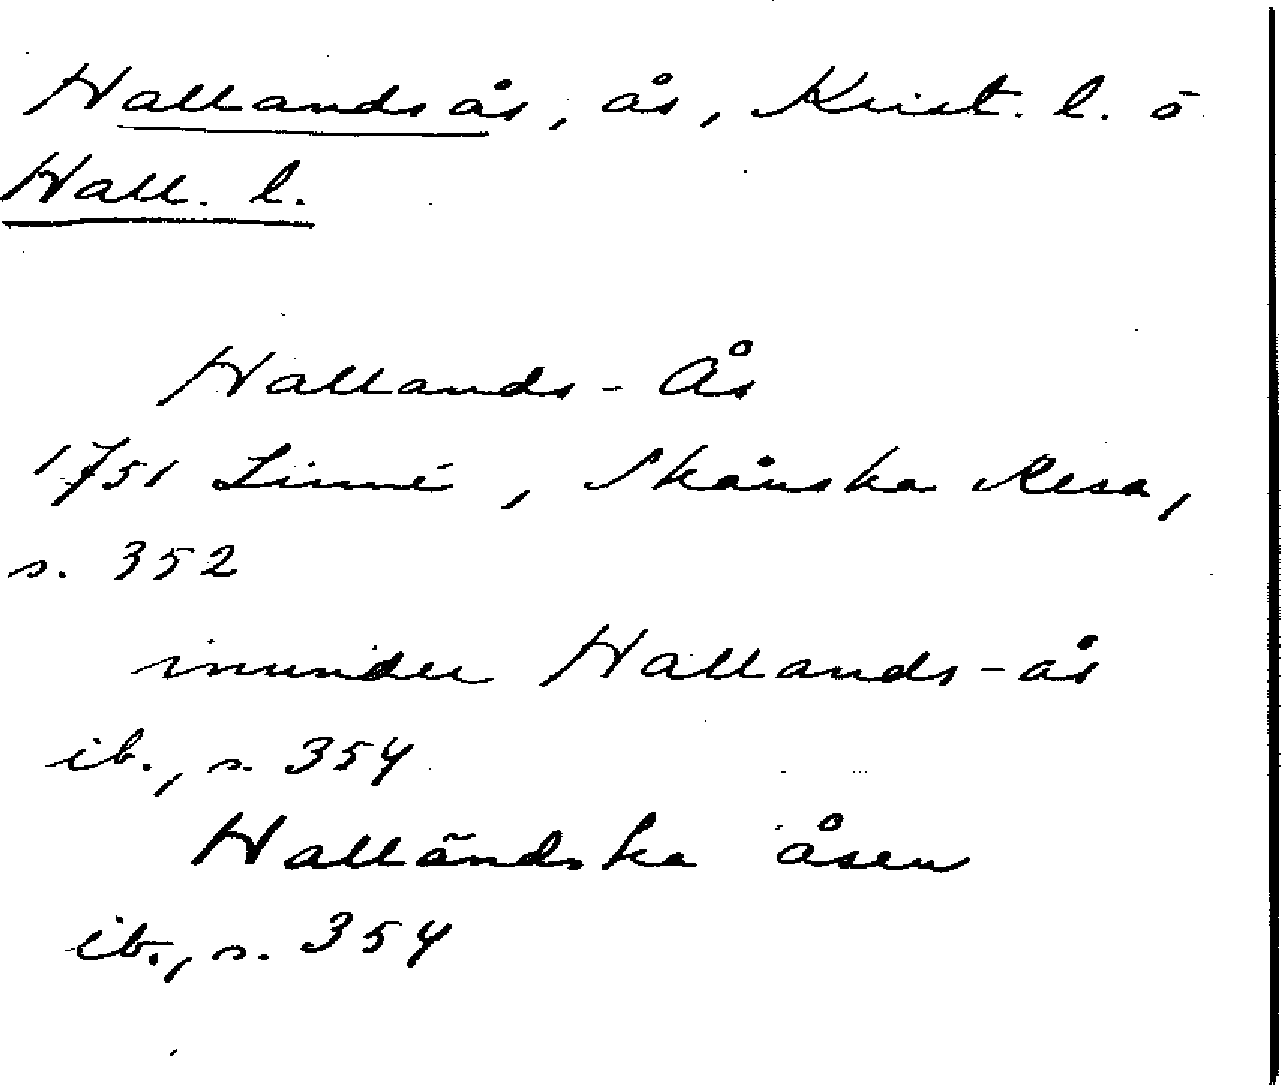 Hallandsås, ås, Krist. l. o
Hall. l.
Hallands-Ås
1751 Linné, Skånska Resa,
s. 352
inunder Hallands-ås
ib., s. 354
Halländska åsen
ib., s. 354